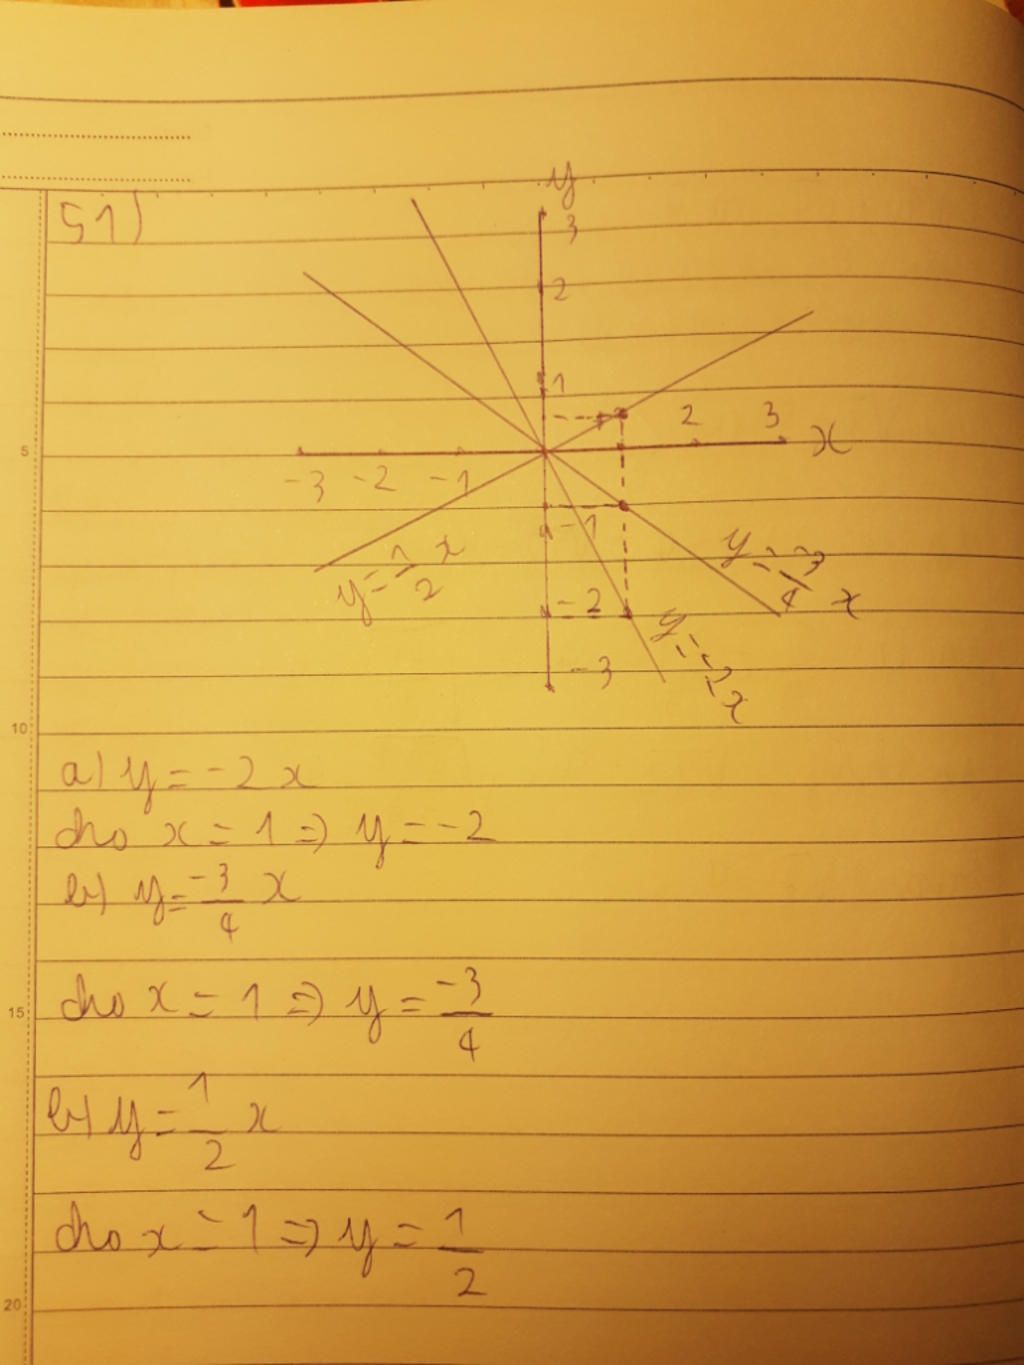 51)
y
3
2
1
2 3 x
-3 -2 -1
-1
y=1/2 x
y=-3/4 x
-2
y=-2x
-3
5
10
15
20
a) y = -2x
cho x = 1 => y = -2
b) y = -3/4 x
cho x = 1 => y = -3/4
b) y = 1/2 x
cho x = 1 => y = 1/2